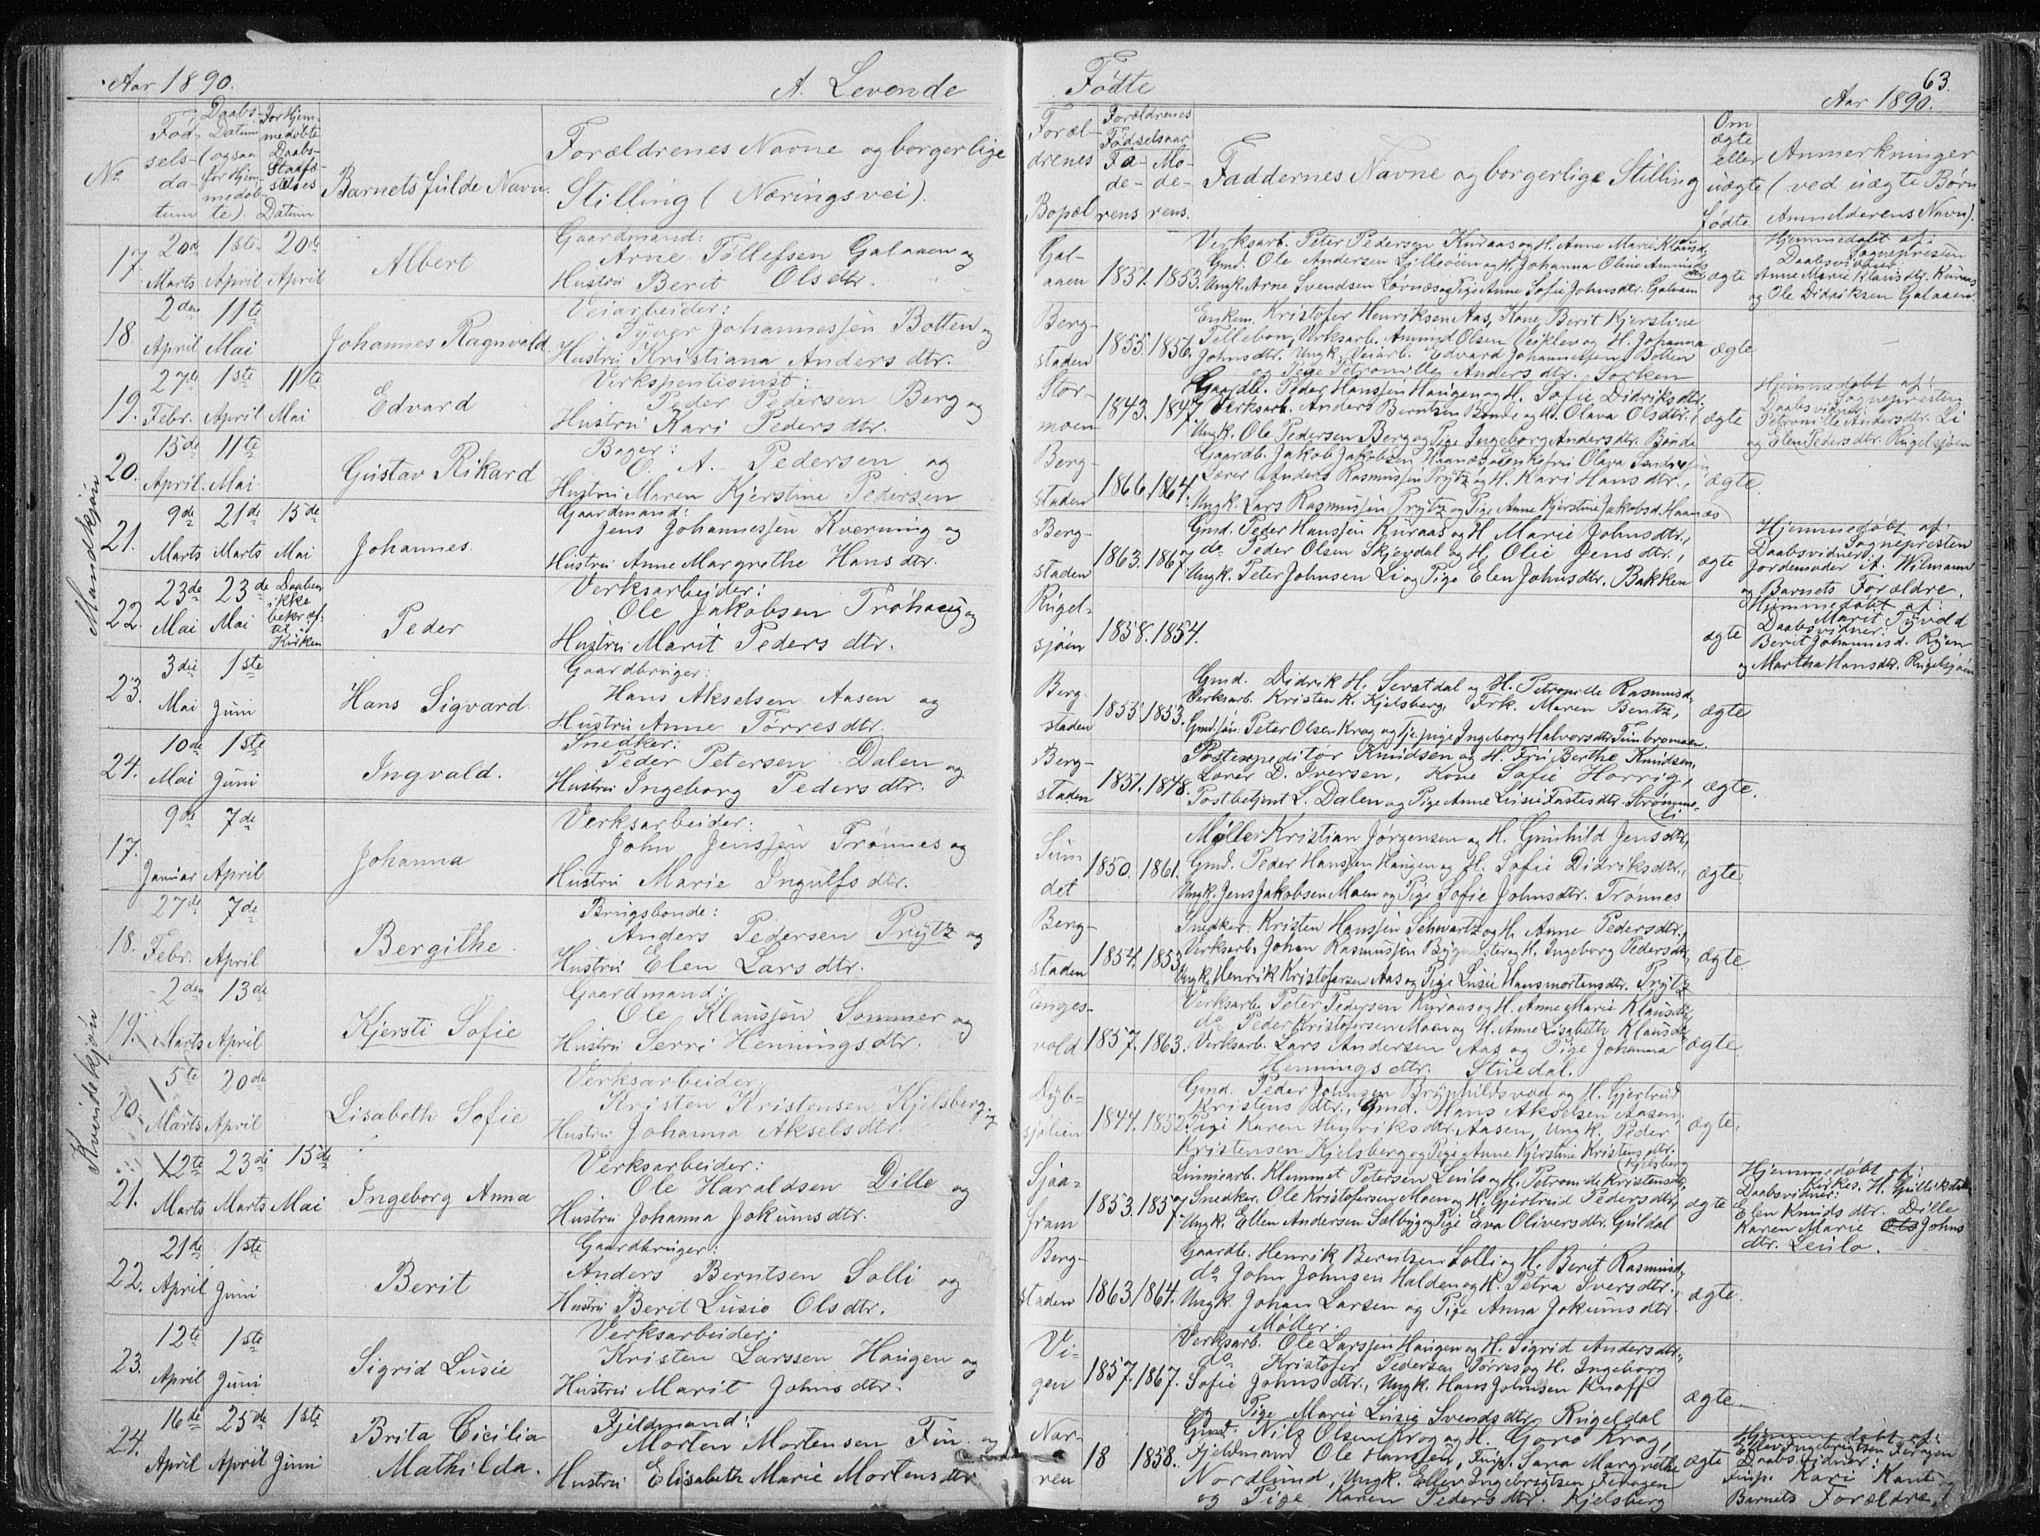 Aar 1890.
A. Levende
No
Fødselsdatum
Daabs-Datum (ogsaa for Hjemmedøbte).
For Hjemmedøbte Daabs-Stadfæstelses Datum
Barnets fulde Navn.
Forældrenes Navne og borgerlige
Stilling (Næringsvei).
Mandkjøn
17. 20de Marts 1ste April 20de April
Albert
Gaardmand:
Arne Tollefsen Galaaen og
Hustru Berit Olsdtr.
18. 2den April 11te Mai
Johannes Ragnvald
Veiarbeider:
Syver Johannessen Botten og
Hustru Kristiana Andersdtr.
19. 27de Febr. 1ste April 11te Mai
Edvard
Verkspentionist:
Peder Pedersen Berg og
Hustru Kari Pedersdtr.
20. 15de April. 11te Mai
Gustav Rikard
Bager:
E. A. Pedersen og
Hustru Maren Kjerstine Pedersen
21. 9de Marts 21de Marts 15de Mai
Johannes.
Gaardmand:
Jens Johannessen Kverning og
Hustru Anne Margrethe Hansdtr.
22. 23de Mai 23de Mai Daaben ikke bekræftet i Kirken
Peder
Verksarbeider:
Ole Jakobsen Trøhaug og
Hustru Marit Pedersdtr.
23. 3die Mai 1ste Juni
Hans Sigvard
Gaardbruger:
Hans Akselsen Aasen og
Hustru Anne Torresdtr.
24. 10de Mai 1ste Juni
Ingvald.
Snedker:
Peder Petersen Dalen og
Hustru Ingeborg Pedersdtr.
Kvindekjøn
17. 9de Januar 7de April
Johanna
Verksarbeider:
John Jenssen Trønnes og
Hustru Marie Ingulfsdtr.
18. 27de Febr. 7de April
Bergithe
Brugsbonde:
Anders Pedersen Prytz og
Hustru Elen Larsdtr.
19. 2den Marts 13de April
Kjersti Sofie
Gaardmand:
Ole Klaussen Sommer og
Hustru Serri Henningsdtr.
20. 5te Marts 20de April
Lisabeth Sofie
Verksarbeider:
Kristen Kristensen Kjelsberg og
Hustru Johanna Akselsdtr.
21. 12te Marts 23de Marts 15de Mai
Ingeborg Anna
Verksarbeider:
Ole Haraldsen Dille og
Hustru Johanna Jokumsdtr.
22. 21de April 1ste Juni
Berit
Gaardbruger:
Anders Berntsen Solli og
Hustru Berit Lusie Olsdtr.
23. 12te April 1ste Juni
Sigrid Lusie
Verksarbeider:
Kristen Larssen Haugen og
Hustru Marit Johnsdtr.
24. 16de April 25de April 1ste Juni
Brita Cicilia
Mathilda.
Fjeldmand:
Morten Mortensen Fin og
Hustru Elisabeth Marie Mortensdtr.
Fødte
63.
Aar 1890.
Forældrenes Bopæl
Forældrenes Fødselsaar
Faderens
Moderens.
Faddernes Navne og borgerlige Stilling
Om ægte eller uægte fødte
Anmerkninger
(ved uægte Børn
Anmelderens Navn).
Galaaen 1851. 1853.
Verksarb. Peter Pedersen Kuraas og H. Anne Marie Klausd.,
Gmd. Ole Andersen Lilleøien og H. Johanna Oline Amundsdtr.
Ungk. Arne Svendsen Lovnæs og Pige Anne Sofie Johnsdtr. Galaaen
ægte
Hjemmedøbt af:
Sognepresten
Daabsvidner:
Anne Marie Klausdtr. Kuraas
og Ole Didriksen Galaaen.
Bergstaden 1855. 1856.
Enkem. Kristofer Henriksen Aas, Kone Berit Kjerstine
Tillebon, Verksarb. Amund Olsen Veiklev og H. Johanna
Johnsdtr. Ungk. Veiarb. Edvard Johannessen Botten
og Pige Petronille Andersdtr. Sorken
ægte
Stormoen 1843. 1847.
Gaardb. Peder Hanssen Haugen og H. Sofie Didriksdtr.
Verksarb. Anders Berntsen Bonde og H. Olava Olsdtr.,
Ungk. Ole Pedersen Berg og Pige Ingeborg Andersdtr. Bonde
ægte
Hjemmedøbt af:
Sognepresten
Daabsvidner:
Petronille Andersdtr. Li
og Elen Pedersdtr. Rugelsjøen
Bergstaden 1866. 1864.
Gaardb. Jakob Jakobsen Haanæs, Enkefru Olava
Lærer Anders Rasmussen Prytz og H. Kari Hansdtr.,
Ungk. Lars Rasmussen Prytz og Pige Anne Kjerstine Jakobsd. Haanæs
ægte.
Bergstaden 1863. 1867.
Gmd. Peder Hanssen Kuraas og H. Marie Johnsdtr.,
do Peder Olsen Skjevdal og H. Olie Jensdtr.,
Ungk. Peter Johnsen Li og Pige Elen Johnsdtr. Bakken
ægte
Hjemmedøbt af:
Sognepresten
Daabsvidner:
Jordemoder A. Wilmann
og Barnets Forældre.
Rugelsjøen 1858. 1854.
ægte
Hjemmedøbt af:
Marit Tyvold
Daabsvidner:
Berit Johannesd. Ryen
og Martha Hansdtr. Rugelsjøen
Bergstaden 1855. 1853.
Gmd. Didrik H. Sevatdal og H. Petronille Rasmusd.
Verksarb. Kristen K. Kjelsberg, Frk. Maren Bentz,
Gmdssøn Peter Olsen Krog og Tj.pige Ingeborg Halvorsdtr. Finbromoen.
ægte
Bergstaden 1851. 1848.
Postexpeditør Knudsen og H. Fru Berthe Knudsen,
Lærer D. Iversen, Kone Sofie Horrig,
Postbetjent L. Dalen og Pige Anne Lusie Fastesdtr. Strømmeli
ægte.
Sundet 1850. 1861.
Møller Kristian Jørgensen og H. Gunhild Jensdtr.,
Gmd. Peder Hanssen Haugen og H. Sofie Didriksdtr.,
Ungk. Jens Jakobsen Moen og Pige Sofie Johnsdtr. Trønnes
ægte.
Bergstaden 1854. 1853.
Snedker Kristen Hanssen Schwartz og H. Anne Pedersdtr.,
Verksarb. Johan Rasmussen Bygmester og H. Ingeborg Pedersdtr.
Ungk. Henrik Kristofersen Aas og Pige Lusie Hansmortensdtr. Prytz
ægte
Engesvold 1857. 1863.
Verksarb. Peter Pedersen Kuraas og H. Anne Marie Klausdtr.
do Peder Kristofersen Moen og H. Anne Lisabeth Klausdtr.
Verksarb. Lars Andersen Aas og Pige Johanna
Henningsdtr. Stuedal.
ægte.
Dybsjølien 1844. 1852.
Gmd. Peder Johnsen Brynhildsvod og H. Gjertrud
Kristensdtr., Gmd. Hans Akselsen Aasen,
Pige Karen Henriksdtr. Aasen, Ungk. Peder
Kristensen Kjelsberg og Pige Anne Kjerstine Kristensdtr. Kjelsberg
ægte.
Sjaafram 1853. 1857.
Klemmet Petersen Leulo og H. Petronille Kristensdtr.
Snedker Ole Kristofersen Moen og H. Gjertrud Pedersdtr.,
Ungk. Ellen Andersen Sælbyg og Pige Eva Oliversdtr. Guldal
ægte
Hjemmedøbt af:
Kirkes. H. Gullikstad
Daabsvidner:
Elen Knudsdtr. Dille
Karen Marie Johnsdtr. Leulo.
Bergstaden 1863. 1864.
Gaardb. Henrik Berntzen Solli og H. Berit Rasmusd.,
do John Johnsen Halden og H. Petra Iversdtr.,
Ungk. Johan Larsen og Pige Anna Jokumsdtr.
Møller.
ægte.
Vigen 1857. 1867.
Verksarb. Ole Larssen Haugen og H. Sigrid Andersdtr.,
do Kristofer Pedersen Torres og H. Ingeborg
Sofie Johnsdtr., Ungk. Hans Johnsen Knoff
og Pige Marie Lusie Svendsdtr. Rugeldal
ægte.
Narren 18 1858.
Gmd. Nils Olsen Krog og H. Goro Krog,
Fjeldmand Ole Hanssen, Finp. Sara Margrethe
Nordlund, Ungk. Ellev Ingebrigtsen Feragen
og Pige Karen Pedersdtr. Kjelsberg
ægte
Hjemmedøbt af:
Ellev Ingebrigtsen Feragen
Daabsvidner:
Finp. Kari Kant og
Barnets Forældre.